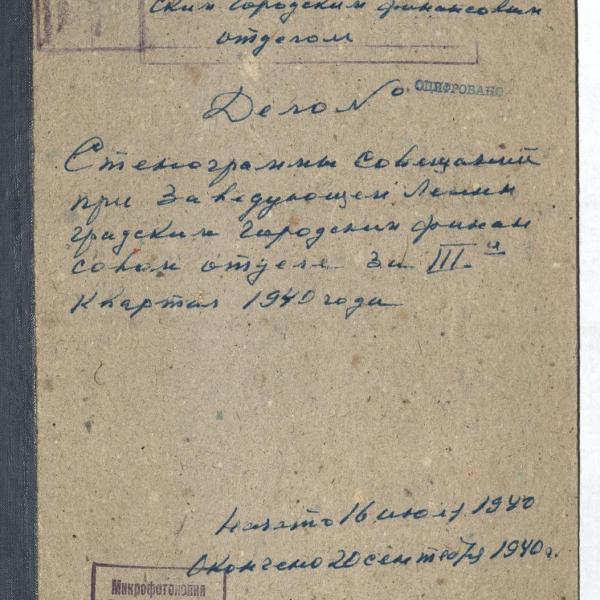 ским городским финансовым
отделом
Дело №
ОЦИФРОВАНО
Стенограммы совещаний
при заведующем Ленин
градским городским финан
совом отделе за III й
квартал 1940 года
Начато 16 июля 1940
Окончено 20 сентября 1940 г.
Микрофотокопия